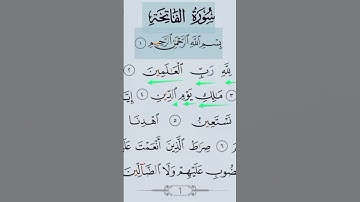 سُورَةُ الفَاتِحَةِ
بِسْمِ ٱللَّهِ ٱلرَّحْمَٰنِ ٱلرَّحِيمِ ١
لِلَّهِ رَبِّ ٱلْعَٰلَمِينَ ٢
٣ مَٰلِكِ يَوْمِ ٱلدِّينِ ٤ إِيَّا
نَسْتَعِينُ ٥ ٱهْدِنَا
٦ صِرَٰطَ ٱلَّذِينَ أَنْعَمْتَ عَلَ
ضُوبِ عَلَيْهِمْ وَلَا ٱلضَّآلِّينَ
١